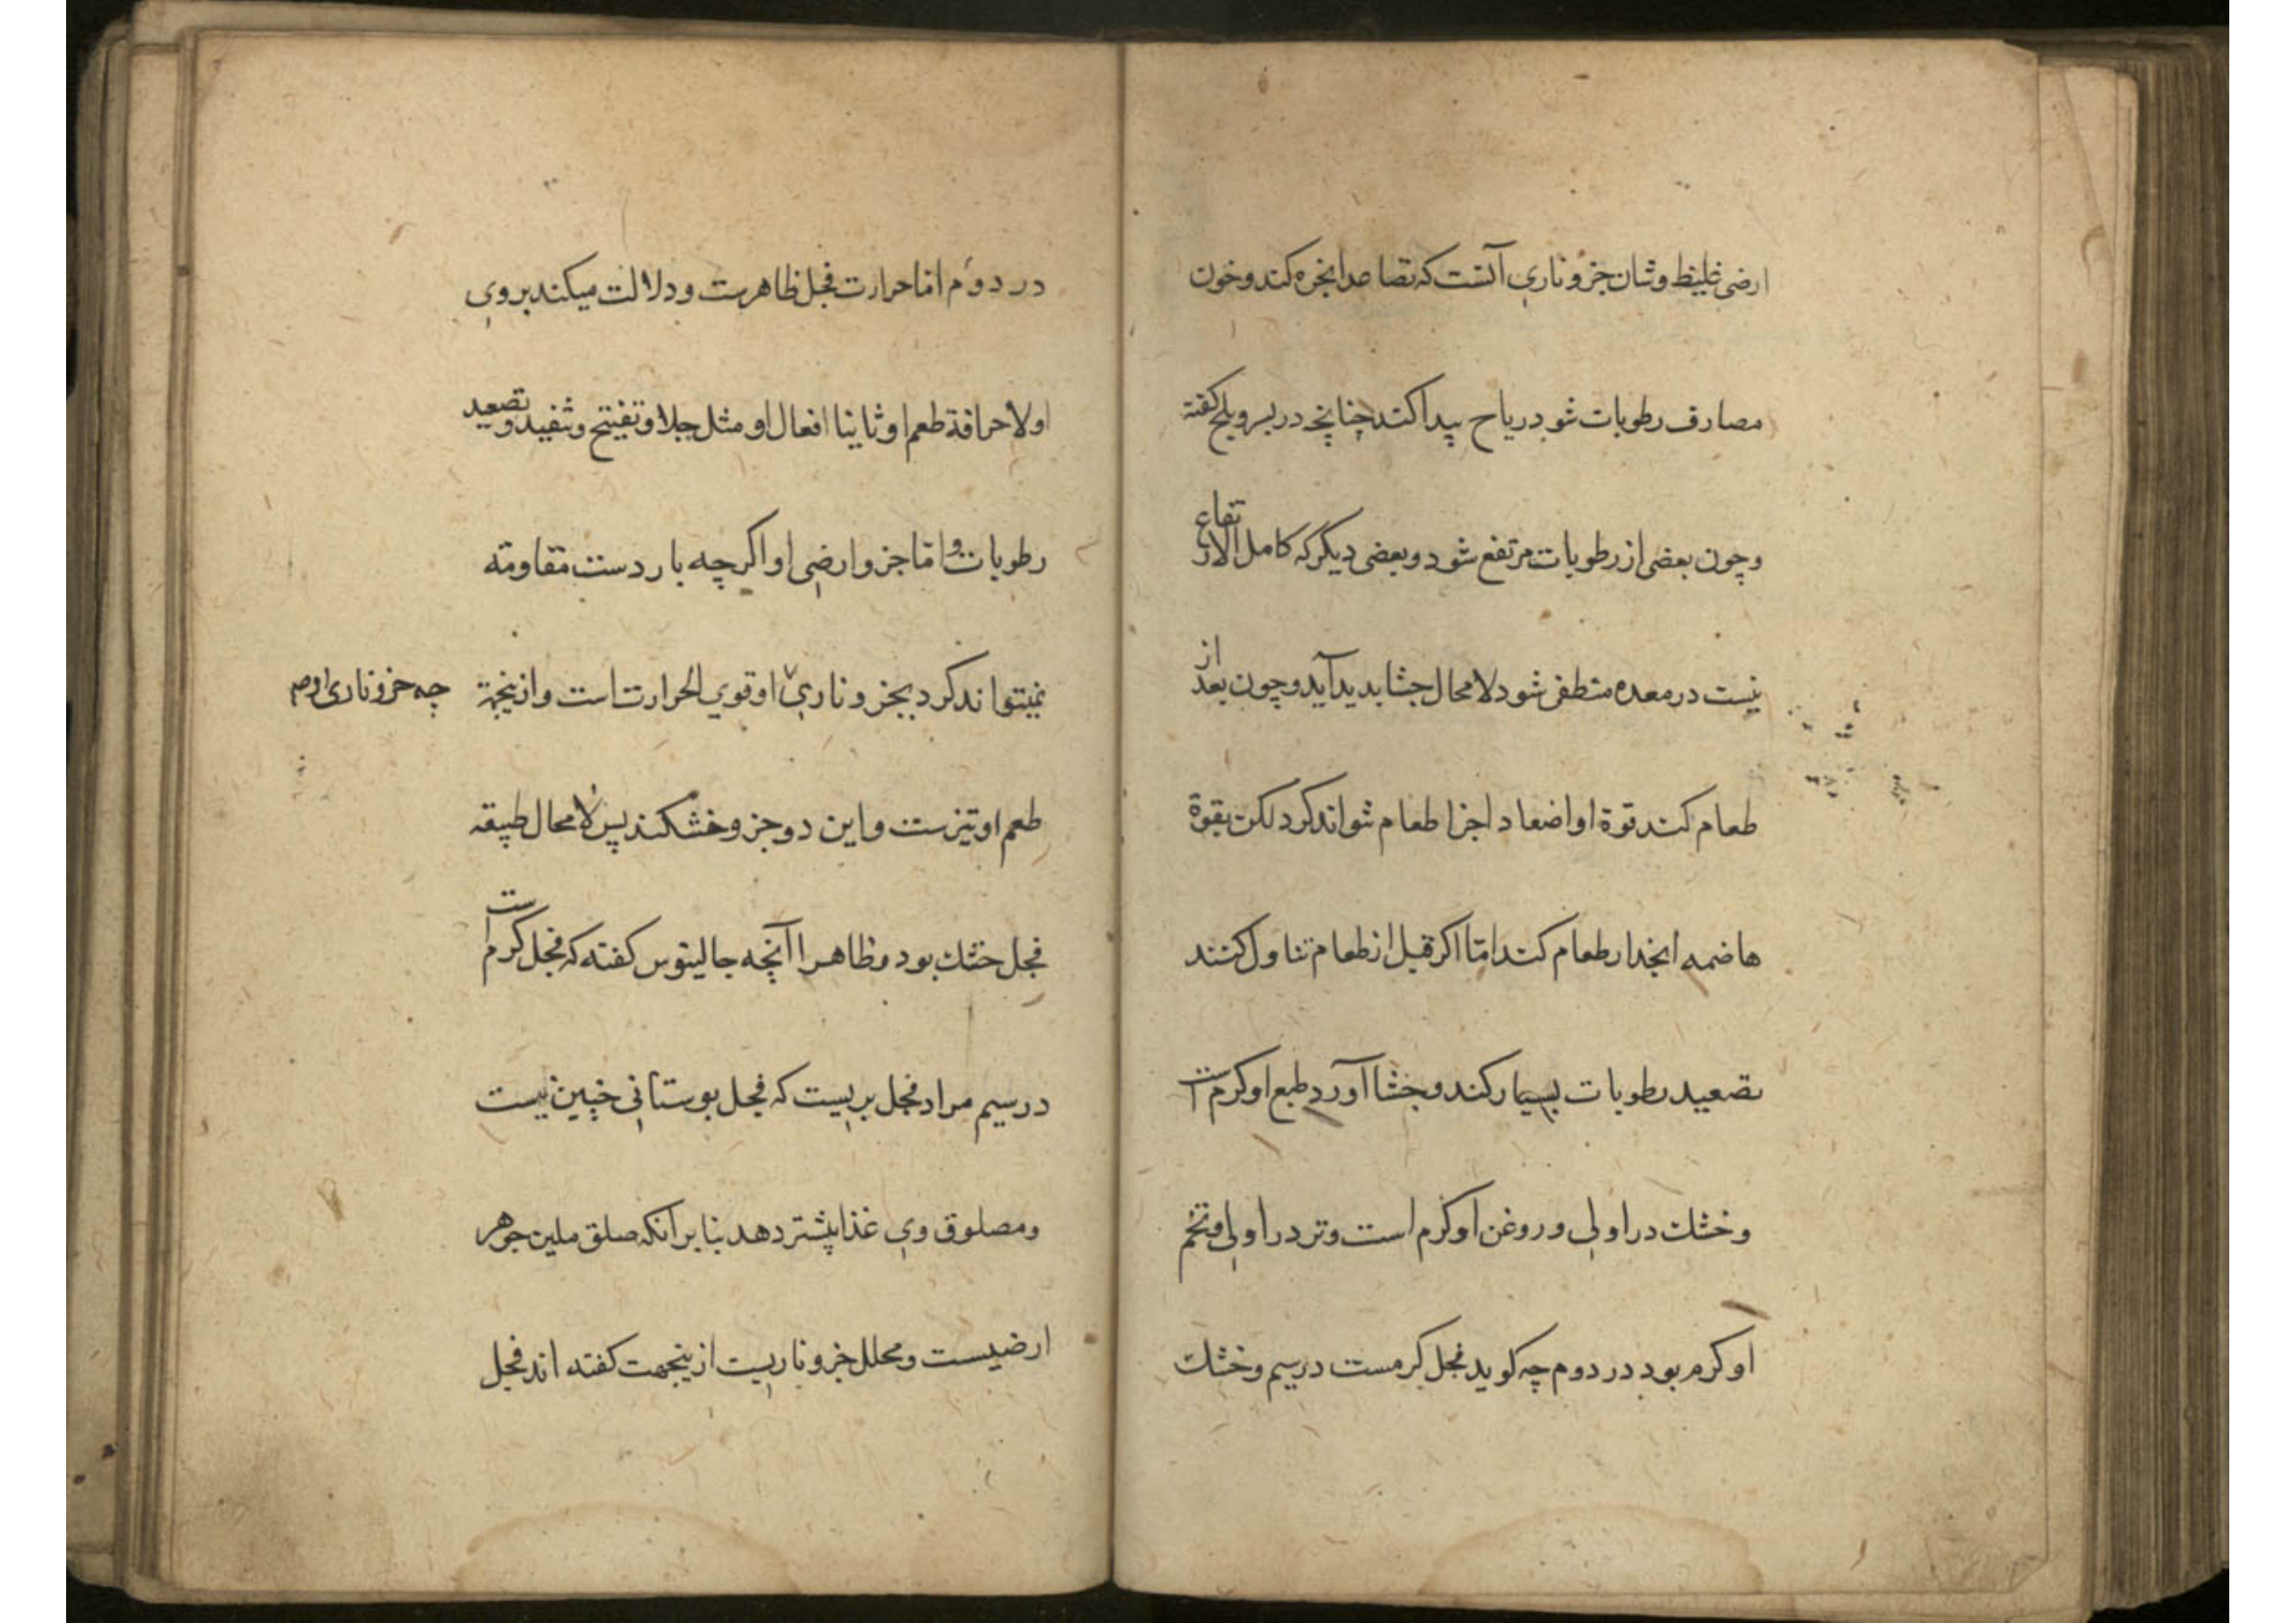 ارضی غلیظ وشان جزو ناری آنست که تصاعد ابخره کند و خون
مصارف رطوبات شود ریاح پیدا کند چنانچه در بسر و بلح گفته
و چون بعضی از رطوبات مرتفع شود و بعضی دیگر که کامل الارتفاع
نیست در معده متطفی شود لا محال جشا بدید آید و چون بعد از
طعام کنند قوة او اضعاد اجزا طعام نتواند کرد لکن بقوة
هاضمه انحدار طعام کند اما اکر قبل از طعام تناول کنند
تصعید رطوبات بسیار کند و جشا آورد طبع او کرم است
و خشك در اولی و روغن او کرم است و تر در اولی و تخم
او کرم بود در دوم چه کوید فجل کرمست در سیم و خشك
در دوم اما حرارت فجل ظاهرست و دلالت میکند بروی
اولا حرافة طعم او ثانیا افعال او مثل جلا و تفتیح و تنفید و تصعید
رطوبات و اما جزو ارضی او اکرچه باردست مقاومته
نمیتواند کرد بجزو ناری او قوی الحرارت است و ازینجهة
چه جزو ناری او
طعم او تیزست و این دو جزو خشکند پس لا محال طبیعه
فجل خشك بود و ظاهرا آنچه جالینوس کفته که فجل کرم است
در سیم مراد فجل بریست که فجل بوستانی چنین نیست
و مصلوق وی غذا بیشتر دهد بنا بر آنکه صلق ملین جوهر
ارضیست و محلل جزو ناریست ازینجهت کفته اند فجل